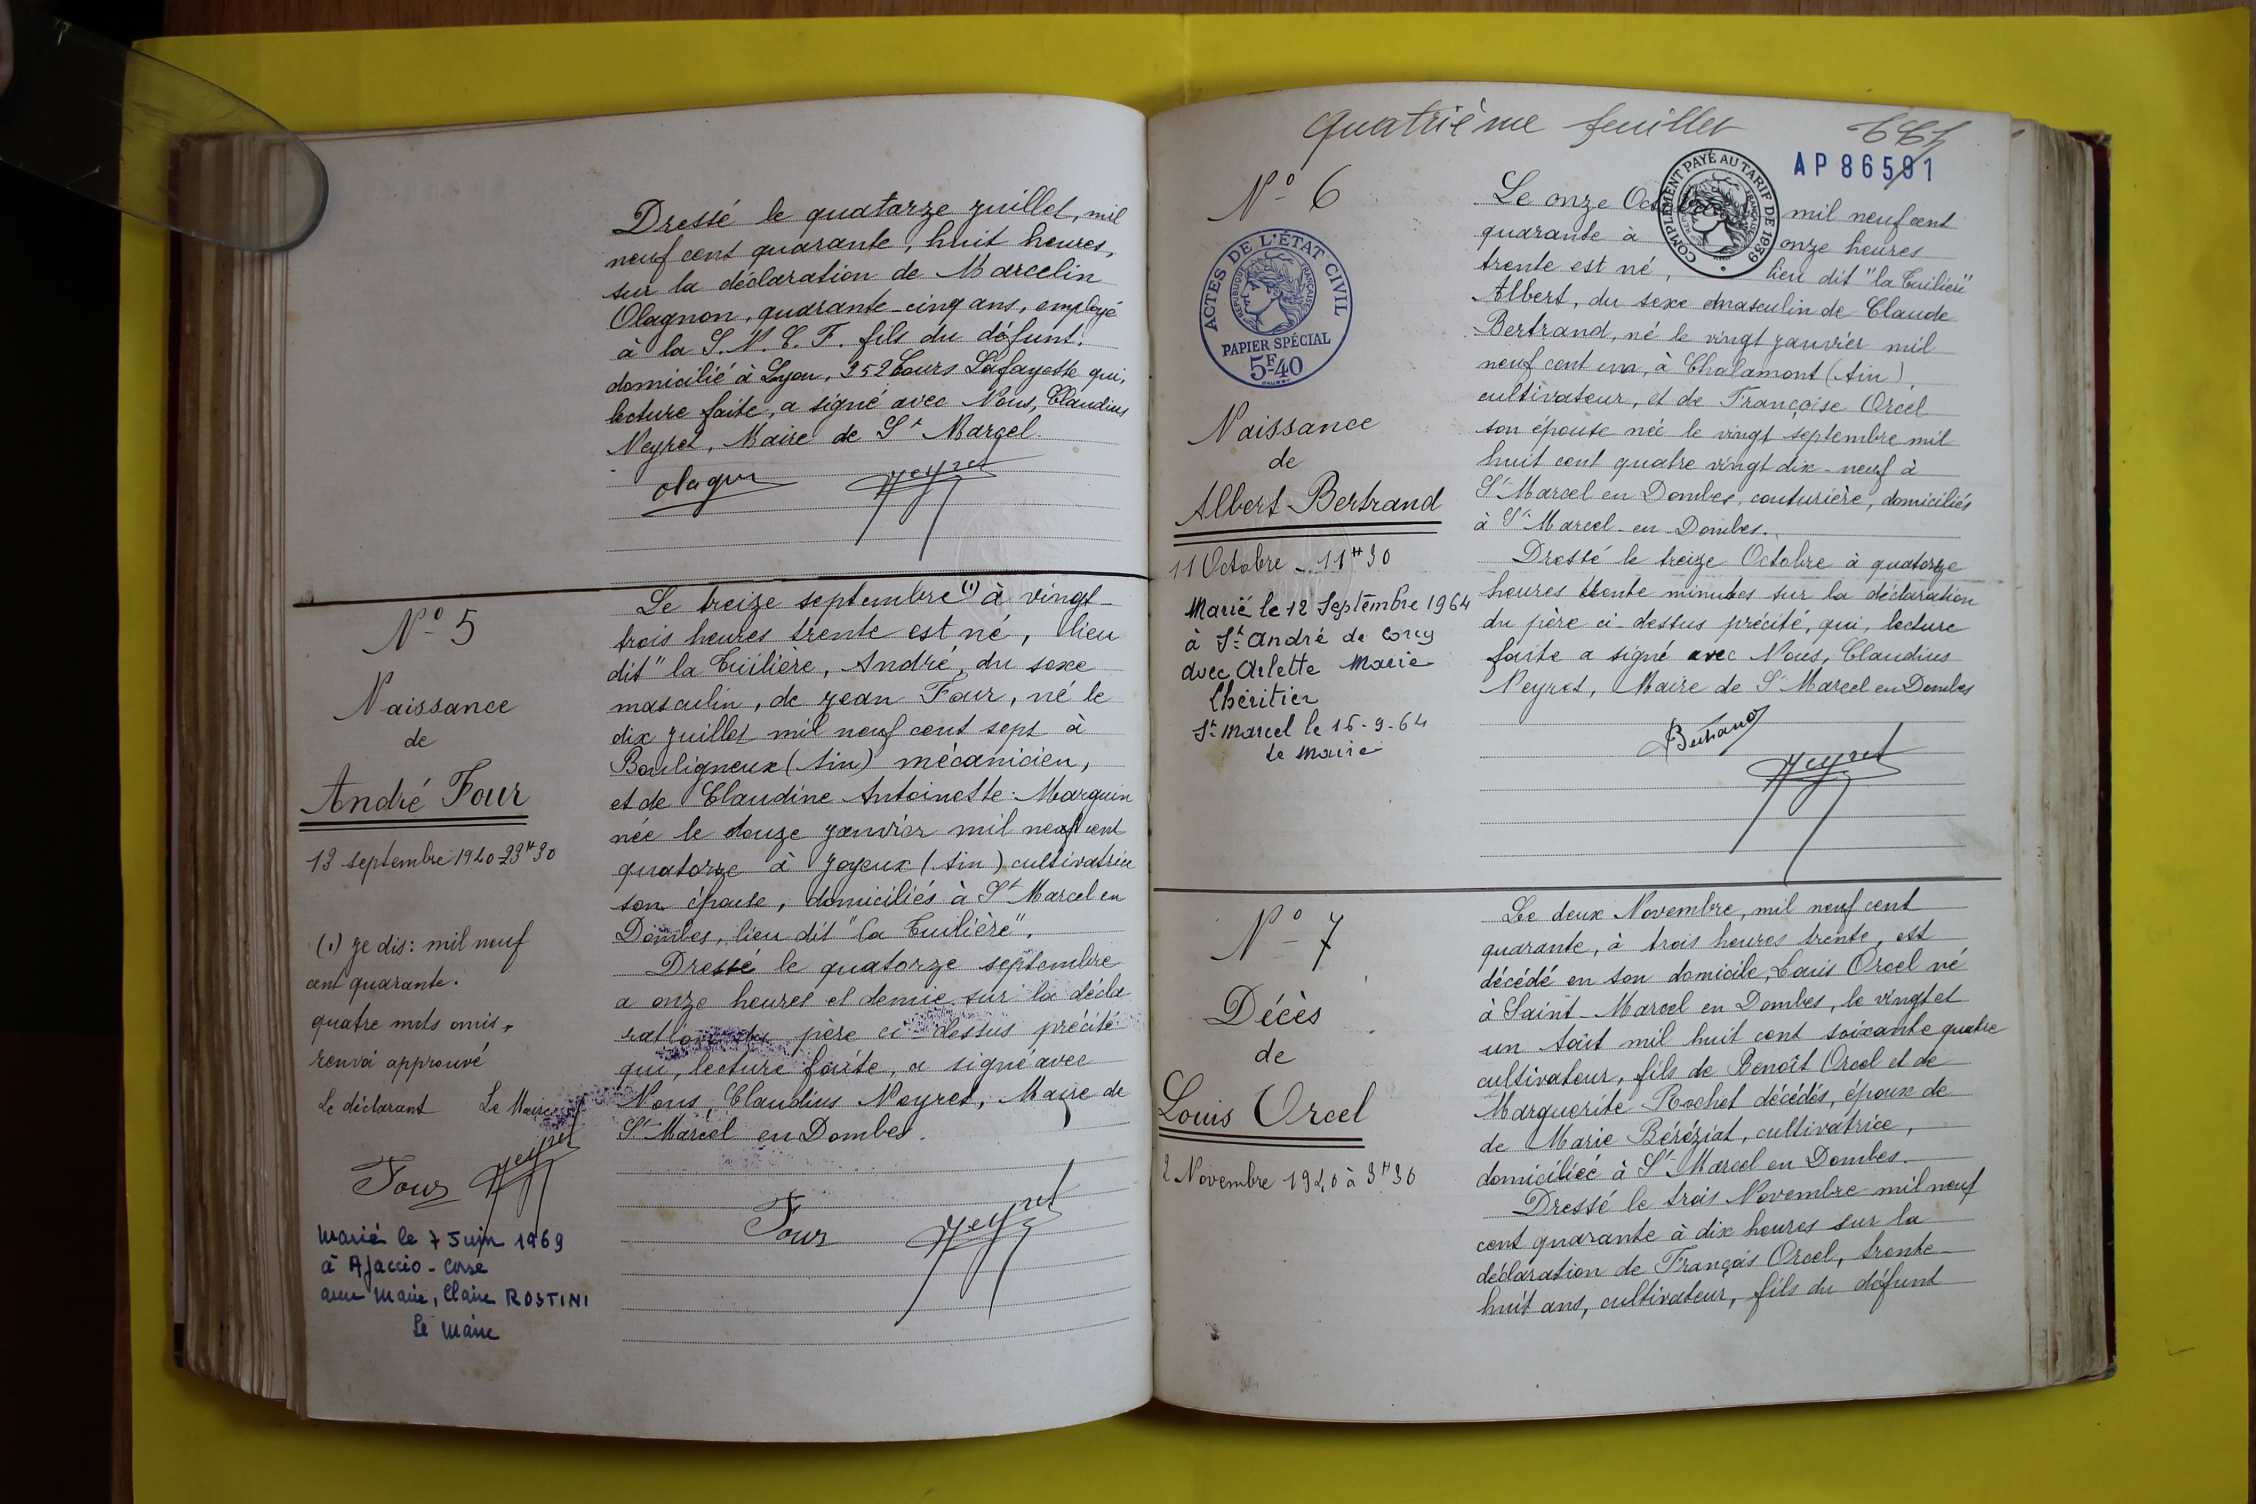 Dressé le quatorze juillet, mil
neuf cent quarante, huit heures,
sur la déclaration de Marcelin
Olagnon, quarante-cinq ans, employé
à la S.N.C.F. fils du défunt.
domicilié à Lyon, 352 Cours Lafayette qui,
lecture faite, a signé avec Nous, Claudius
Neyret, Maire de St Marcel.
Neyret
No 5
Naissance
de
André Four
13 septembre 1940 23H30
(1) je dis: mil neuf
cent quarante.
quatre mots omis,
renvoi approuvé
Le déclarant Le Maire
Four Neyret
Marié le 7 Juin 1969
à Ajaccio - Corse
avec Marie, Claire ROSTINI
Le Maire
Le treize septembre (1) à vingt-
trois heures trente est né, lieu
dit "la Tuilière, André, du sexe
masculin, de Jean Four, né le
dix juillet mil neuf cent sept à
Bouligneux (Ain) mécanicien,
et de Claudine Antoinette Marguin
née le douze janvier mil neuf cent
quatorze à Joyeux (Ain) cultivatrice
son épouse, domiciliés à St Marcel en
Dombes, lieu dit "la Tuilière".
Dressé le quatorze septembre
a onze heures et demie sur la décla
ration du père ci-dessus précité
qui, lecture faite, a signé avec
Nous, Claudius Neyret, Maire de
St Marcel en Dombes.
Four Neyret
Quatrième feuillet
AP 86591
No 6
ACTES DE L'ÉTAT CIVIL
RÉPUBLIQUE FRANÇAISE
PAPIER SPÉCIAL
5F40
Naissance
de
Albert Bertrand
11 Octobre - 11H30
Marié le 12 Septembre 1964
à St André de Corcy
avec Arlette Marie
Lhéritier
St Marcel le 15-9-64
Le Maire
COMPLÉMENT PAYÉ AU TARIF DE 1939
Le onze Oct mil neuf cent
quarante à onze heures
trente est né, lieu dit "la Tuilière"
Albert, du sexe masculin de Claude
Bertrand, né le vingt janvier mil
neuf cent un, à Chalamont (Ain),
cultivateur, et de Françoise Orcel
son épouse née le vingt septembre mil
huit cent quatre vingt dix-neuf à
St Marcel en Dombes, couturière, domiciliés
à St Marcel-en-Dombes.
Dressé le treize Octobre à quatorze
heures trente minutes sur la déclaration
du père ci-dessus précité, qui, lecture
faite a signé avec Nous, Claudius
Neyret, Maire de St Marcel en Dombes
Bertrand
Neyret
No 7
Décès
de
Louis Orcel
2 Novembre 1940 à 3H30
Le deux Novembre, mil neuf cent
quarante, à trois heures trente, est
décédé en son domicile, Louis Orcel né
à Saint-Marcel en Dombes, le vingt et
un Août mil huit cent soixante quatre
cultivateur, fils de Benoît Orcel et de
Marguerite Rochet décédés, époux de
de Marie Béréziat, cultivatrice,
domiciliée à St Marcel en Dombes.
Dressé le trois Novembre mil neuf
cent quarante à dix heures sur la
déclaration de François Orcel, trente-
huit ans, cultivateur, fils du défunt